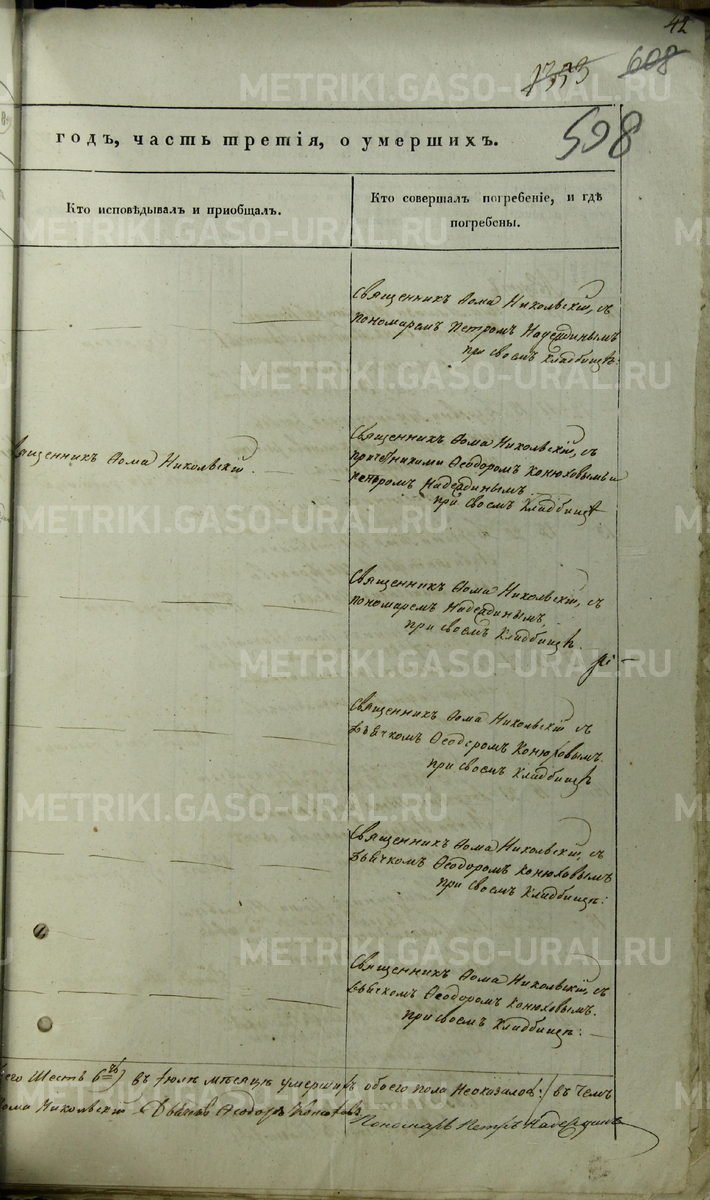 42
608
598
годъ, часть третія, о умершихъ.
Кто исповѣдывалъ и приобщалъ.
Кто совершалъ погребеніе, и гдѣ
погребены.
Священникъ Ѳома Никольскій, съ
пономаремъ Петромъ Надеждинымъ
при своемъ кладбищѣ.
Священникъ Ѳома Никольскій
Священникъ Ѳома Никольскій, съ
причетниками Ѳеодоромъ Конюховымъ и
Петромъ Надеждинымъ
при своемъ кладбищѣ
Священникъ Ѳома Никольскій, съ
пономаремъ Надеждинымъ,
при своемъ кладбищѣ.
Священникъ Ѳома Никольскій съ
дьячкомъ Ѳеодоромъ Конюховымъ.
при своемъ кладбищѣ
Священникъ Ѳома Никольскій, съ
дьячкомъ Ѳеодоромъ Конюховымъ
при своемъ кладбищѣ:
Священникъ Ѳома Никольскій, съ
дьячкомъ Ѳеодоромъ Конюховымъ.
при своемъ кладбищѣ:
его шесть 6 въ Іюлѣ мѣсяцѣ умершихъ обоего пола неоказалось: въ чемъ
Ѳома Никольскій Дьячекъ Ѳеодоръ Конюховъ
Пономарь Петръ Надеждинъ
METRIKI.GASO-URAL.RU